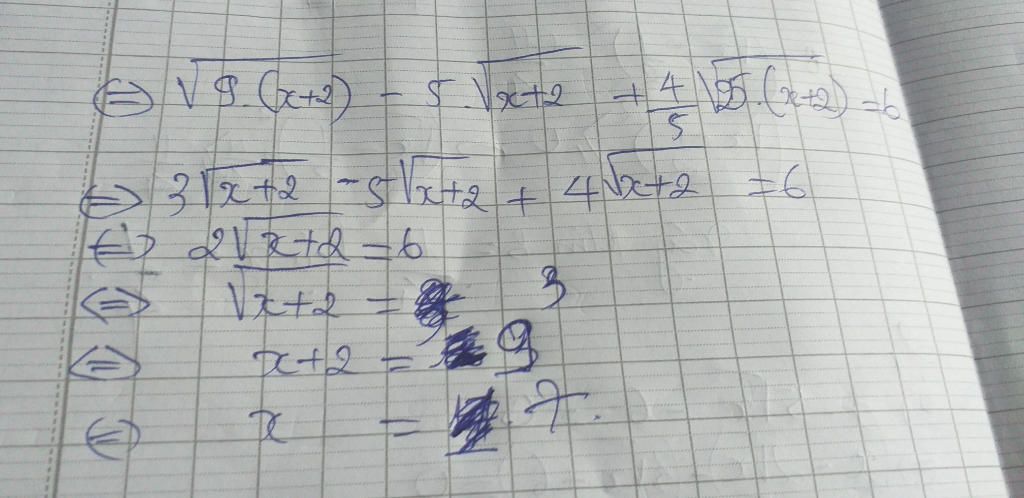 ⇔ √9.(x+2) - 5.√x+2 + 4/5 √25.(x+2) = 6
⇔ 3√x+2 - 5√x+2 + 4√x+2 = 6
⇔ 2√x+2 = 6
⇔ √x+2 = 3
⇔ x+2 = 9
⇔ x = 7.